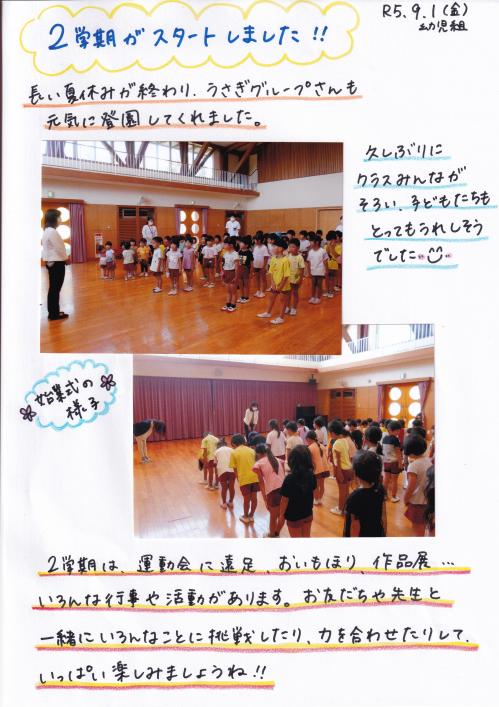 2学期がスタートしました!!
R5.9.1(金)
幼児組
長い夏休みが終わり、うさぎグループさんも
元気に登園してくれました。
久しぶりに
クラスみんなが
そろい、子どもたちも
とってもうれしそう
でした
始業式の
様子
2学期は、運動会に遠足、おいもほり、作品展…
いろんな行事や活動があります。お友だちや先生と
一緒にいろんなことに挑戦したり、力を合わせたりして、
いっぱい楽しみましょうね!!